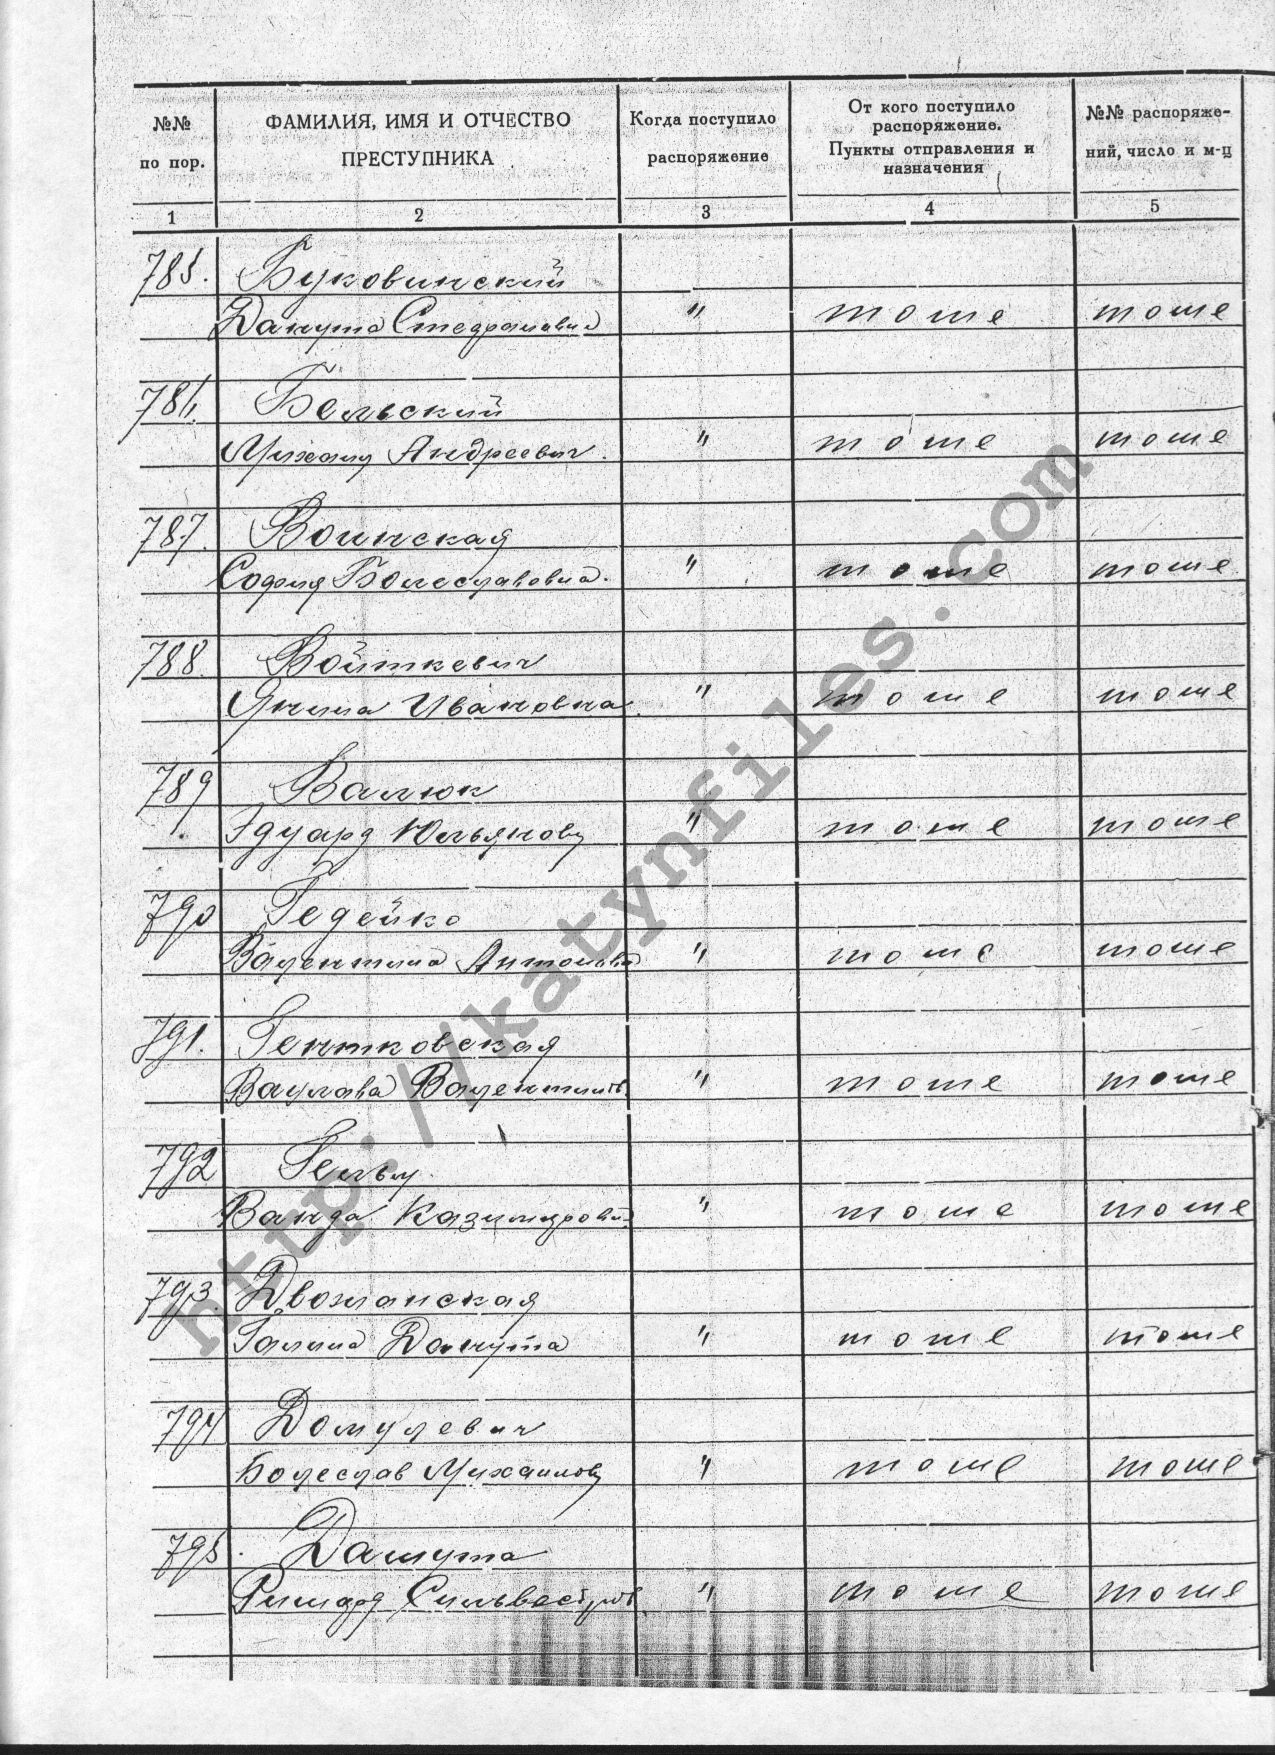 №№
по пор.
ФАМИЛИЯ, ИМЯ И ОТЧЕСТВО
ПРЕСТУПНИКА
Когда поступило
распоряжение
От кого поступило
распоряжение.
Пункты отправления и
назначения
№№ распоряже-
ний, число и м-ц
1 2 3 4 5
785. Буковинский
Данута " тоже тоже
786. Бельский
Михаил Андреевич. " тоже тоже
787. Воинская
София Болеславовна. " тоже тоже
788. Войткевич
Янина Ивановна. " тоже тоже
789. Валюк
Эдуард Юльянов " тоже тоже
790 Гедейко
Валентина " тоже тоже
791. Гентковская
Вацлава " тоже тоже
792
Ванда Казимиров. " тоже тоже
793
Галина Данута " тоже тоже
794 Домулевич
Болеслав Михаилов " тоже тоже
795.
" тоже тоже
http://katynfiles.com